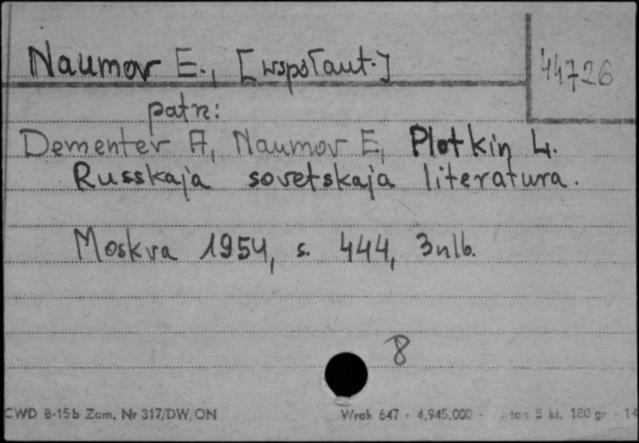 Naumov E., [współaut.]
44726
patrz:
Dementev A, Naumov E, Plotkin L.
Russkaja sovetskaja literatura.
Moskva 1954, s. 444, 3nlb.
8
CWD B-15b Zam. Nr 317/DW/ON Wrak 647 - 4.945.000 - kl. 120 gr - 14